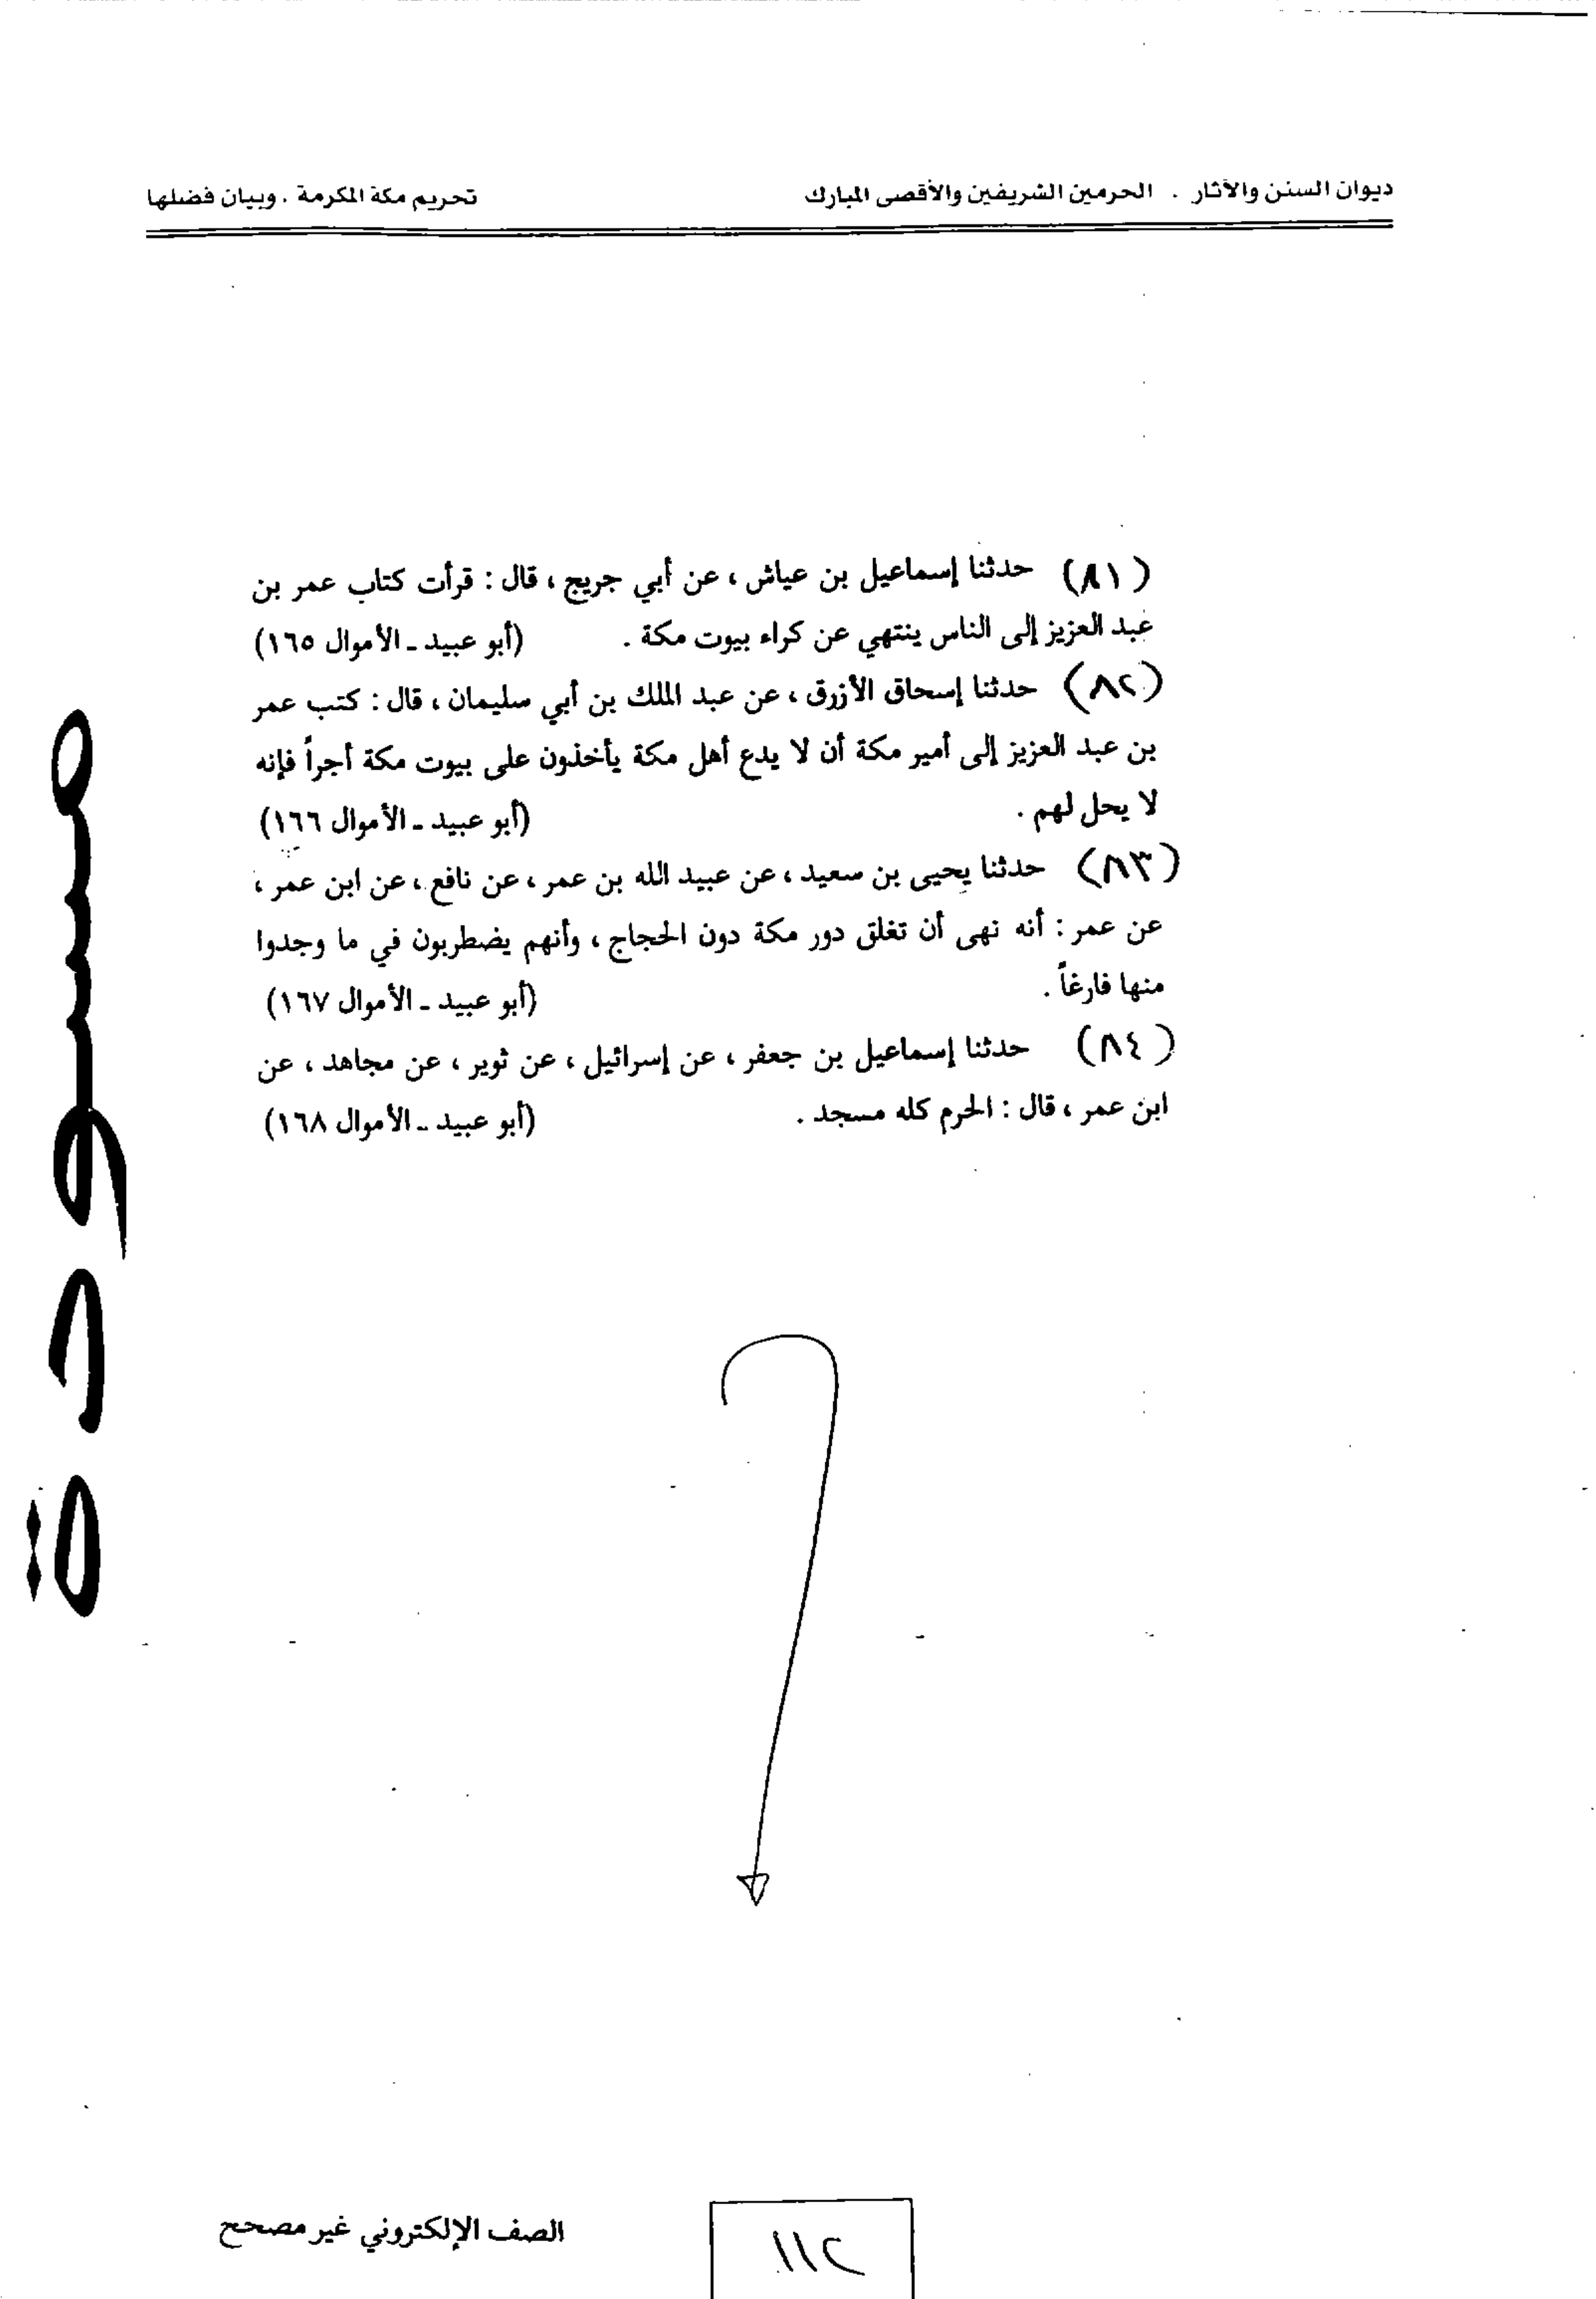 ديوان السنن والآثار . الحرمين الشريفين والأقصى المبارك
تحريم مكة المكرمة . وبيان فضلها
(٨١) حدثنا إسماعيل بن عياش ، عن أبي جريج ، قال : قرأت كتاب عمر بن
عبد العزيز إلى الناس ينتهي عن كراء بيوت مكة . (أبو عبيد ـ الأموال ١٦٥)
(٨٢) حدثنا إسحاق الأزرق ، عن عبد الملك بن أبي سليمان ، قال : كتب عمر
بن عبد العزيز إلى أمير مكة أن لا يدع أهل مكة يأخذون على بيوت مكة أجراً فإنه
لا يحل لهم . (أبو عبيد ـ الأموال ١٦٦)
(٨٣) حدثنا يحيى بن سعيد ، عن عبيد الله بن عمر ، عن نافع ، عن ابن عمر ،
عن عمر : أنه نهى أن تغلق دور مكة دون الحجاج ، وأنهم يضطربون في ما وجدوا
منها فارغاً . (أبو عبيد ـ الأموال ١٦٧)
(٨٤) حدثنا إسماعيل بن جعفر ، عن إسرائيل ، عن ثوير ، عن مجاهد ، عن
ابن عمر ، قال : الحرم كله مسجد . (أبو عبيد ـ الأموال ١٦٨)
مسودة
الصف الإلكتروني غير مصحح
١١٢